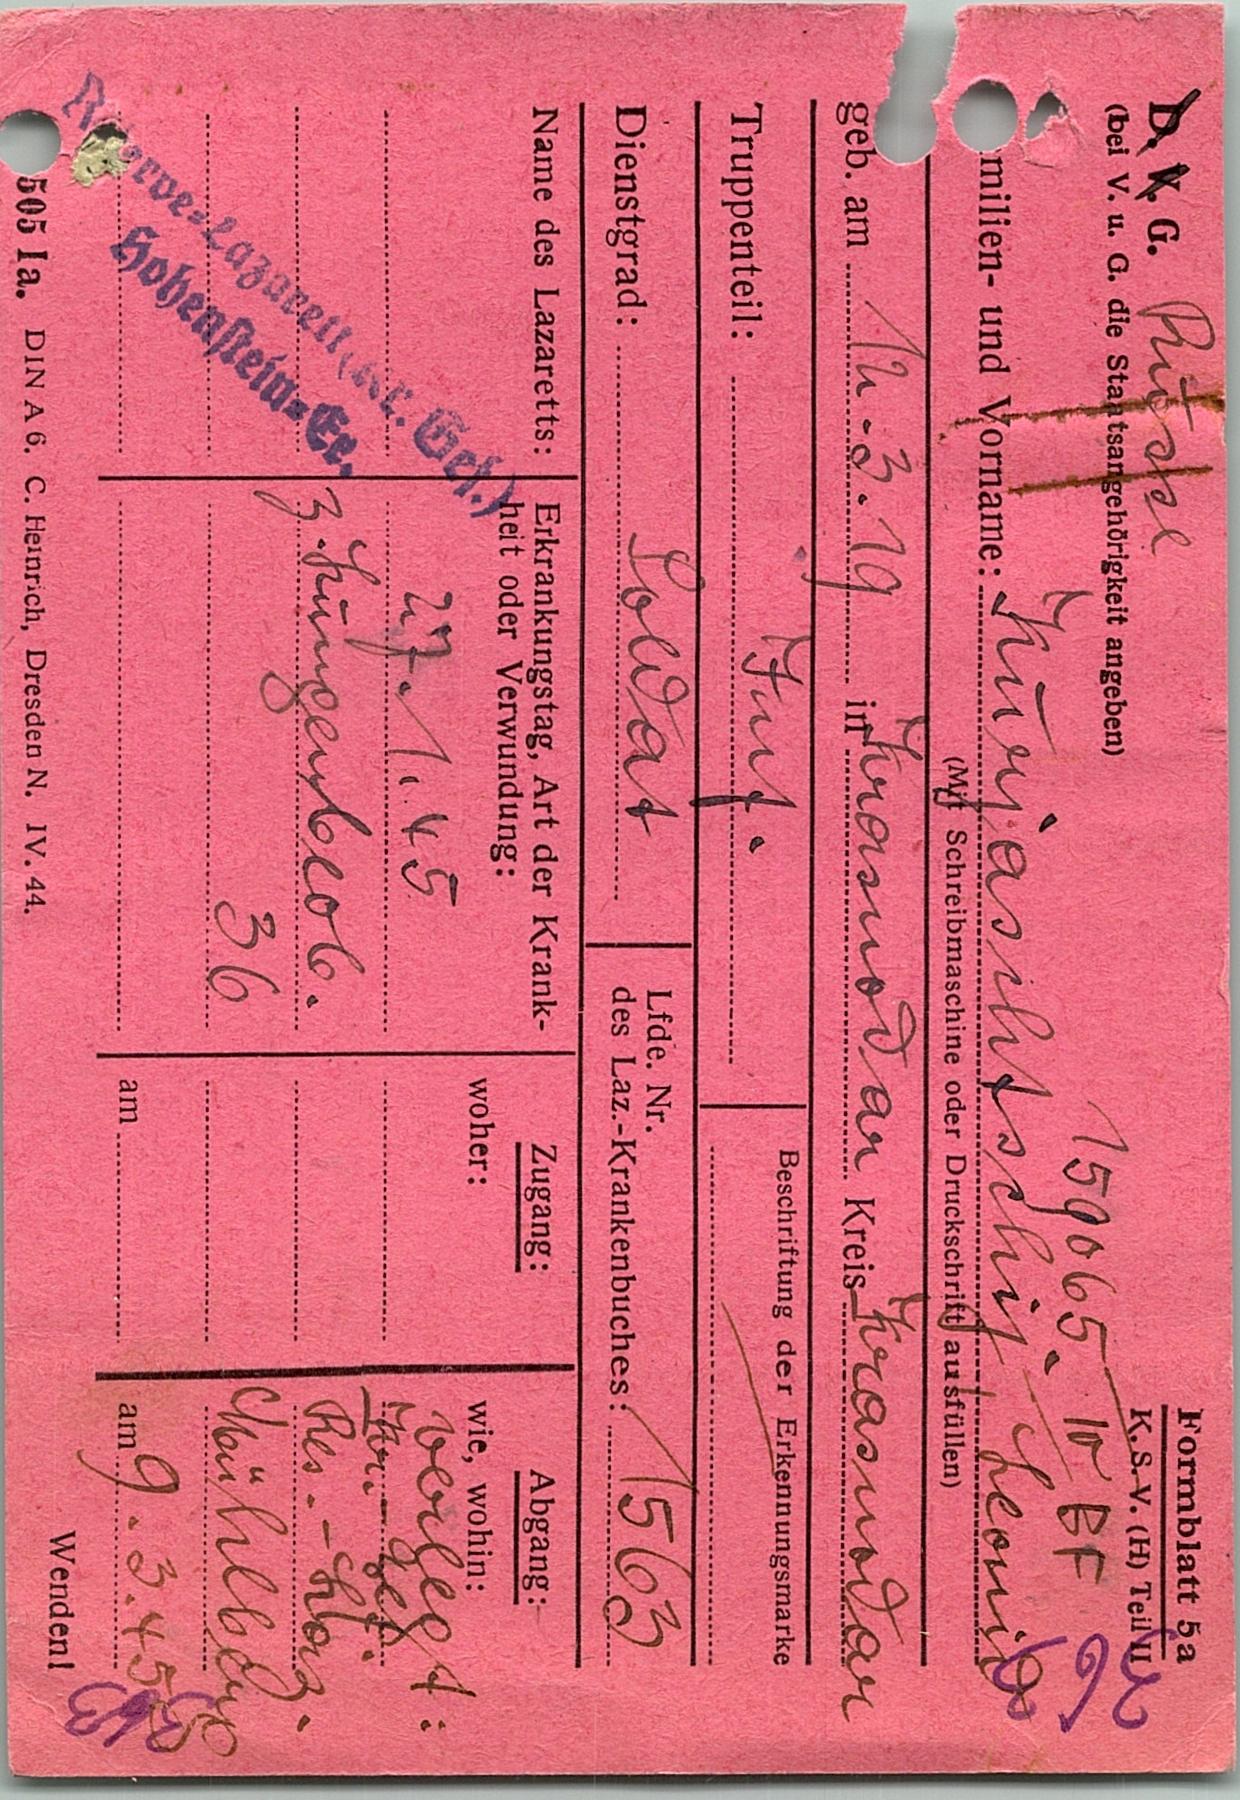 D. K. G. Russe
Formblatt 5a
K.S.-V. (H) Teil II
(bei V. u. G. die Staatsangehörigkeit angeben)
159065. IV BF
milien- und Vorname: Kurjaschtschij Leonid
(Mit Schreibmaschine oder Druckschrift ausfüllen)
geb. am 12.3.19 in Krasnodar Kreis Krasnodar
Truppenteil: Inf.
Beschriftung der Erkennungsmarke
Dienstgrad: Soldat
Lfde. Nr.
des Laz.-Krankenbuches: 1563
Name des Lazaretts:
Reserve-Lazarett (Kr. Gef.)
Hohenstein-Er.
Erkrankungstag, Art der Krank-
heit oder Verwundung:
27.1.45
z. Lungenbeob.
36
Zugang:
woher:
am
Abgang:
wie, wohin:
verlegt:
Kr.-Gef.
Res.-Laz.
Mühlberg
am 9.3.45
505 Ia. DIN A 6. C. Heinrich, Dresden N. IV. 44.
Wenden!